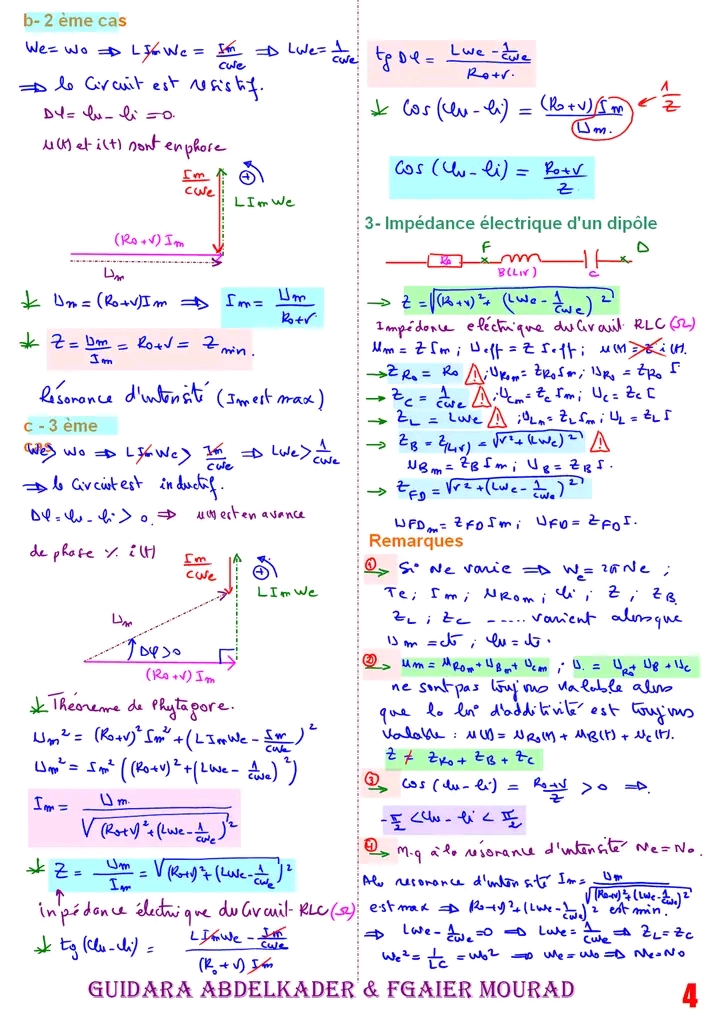 b- 2 ème cas
We = Wo ⇒ L Im We = Im/CWe ⇒ LWe = 1/CWe
⇒ le Circuit est résistif.
Δφ = φu - φi = 0.
u(t) et i(t) sont en phase
Im/CWe
+
L Im We
(Ro+r) Im
Um
* Um = (Ro+r) Im ⇒ Im = Um/(Ro+r)
* Z = Um/Im = Ro+r = Z min.
Résonance d'intensité (Im est max)
c - 3 ème
cas
We > Wo ⇒ L Im We > Im/CWe ⇒ LWe > 1/CWe
⇒ le Circuit est inductif.
Δφ = φu - φi > 0. ⇒ u(t) est en avance
de phase % i(t)
Im/CWe
+
L Im We
Um
Δφ>0
(Ro+r) Im
* Théoreme de Phytagore.
Um² = (Ro+r)² Im² + (L Im We - Im/CWe)²
Um² = Im² ((Ro+r)² + (LWe - 1/CWe)²)
Im = Um/√((Ro+r)² + (LWe - 1/CWe)²)
* Z = Um/Im = √((Ro+r)² + (LWe - 1/CWe)²)
impédance électrique du Circuit RLC (Ω)
* tg(φu - φi) = (L Im We - Im/CWe)/((Ro+r) Im)
tg Δφ = (LWe - 1/CWe)/(Ro+r)
* Cos(φu - φi) = (Ro+r) Im/Um. ← 1/Z
Cos(φu - φi) = (Ro+r)/Z
3- Impédance électrique d'un dipôle
F D
Ro B(L,r) C
→ Z = √((Ro+r)² + (LWe - 1/CWe)²)
Impédance eléctrique du Circuit RLC (Ω)
Um = Z Im ; Ueff = Z Ieff ; u(t) = Z i(t).
→ Z Ro = Ro ⚠ ; URom = ZRo Im ; URo = ZRo I
→ Zc = 1/CWe ⚠ ; UCm = Zc Im ; Uc = Zc I
→ ZL = LWe ⚠ ; ULm = ZL Im ; UL = ZL I
→ ZB = Z(L,r) = √(r² + (LWe)²) ⚠
UBm = ZB Im ; UB = ZB I.
→ ZFD = √(r² + (LWe - 1/CWe)²)
UFDm = ZFD Im ; UFD = ZFD I.
Remarques
① → Si Ne varie ⇒ We = 2π Ne ;
Te ; Im ; URom ; φi ; Z ; ZB
ZL ; Zc ----- varient alors que
Um = cte ; φu = cte.
② → Um = URom + UBm + Ucm ; U = URo + UB + Uc
ne sont pas toujours valable alors
que la loi d'additivité est toujours
valable : u(t) = uRo(t) + uB(t) + uc(t).
Z ≠ ZRo + ZB + Zc
③ → Cos(φu - φi) = (Ro+r)/Z > 0 ⇒
-π/2 < φu - φi < π/2
④ → M.q à la résonance d'intensité Ne = No.
A la resonance d'intensité Im = Um/√((Ro+r)² + (LWe - 1/CWe)²)
est max ⇒ (Ro+r)² + (LWe - 1/CWe)² est min.
⇒ LWe - 1/CWe = 0 ⇒ LWe = 1/CWe ⇒ ZL = Zc
We² = 1/LC = Wo² ⇒ We = Wo ⇒ Ne = No
GUIDARA ABDELKADER & FGAIER MOURAD
4